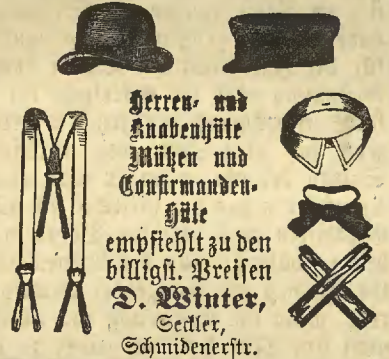 Herren- und
Knabenhüte
Mützen und
Confirmanden-
Hüte
empfiehlt zu den
billigst. Preisen
D. Winter,
Seckler,
Schmidenerstr.